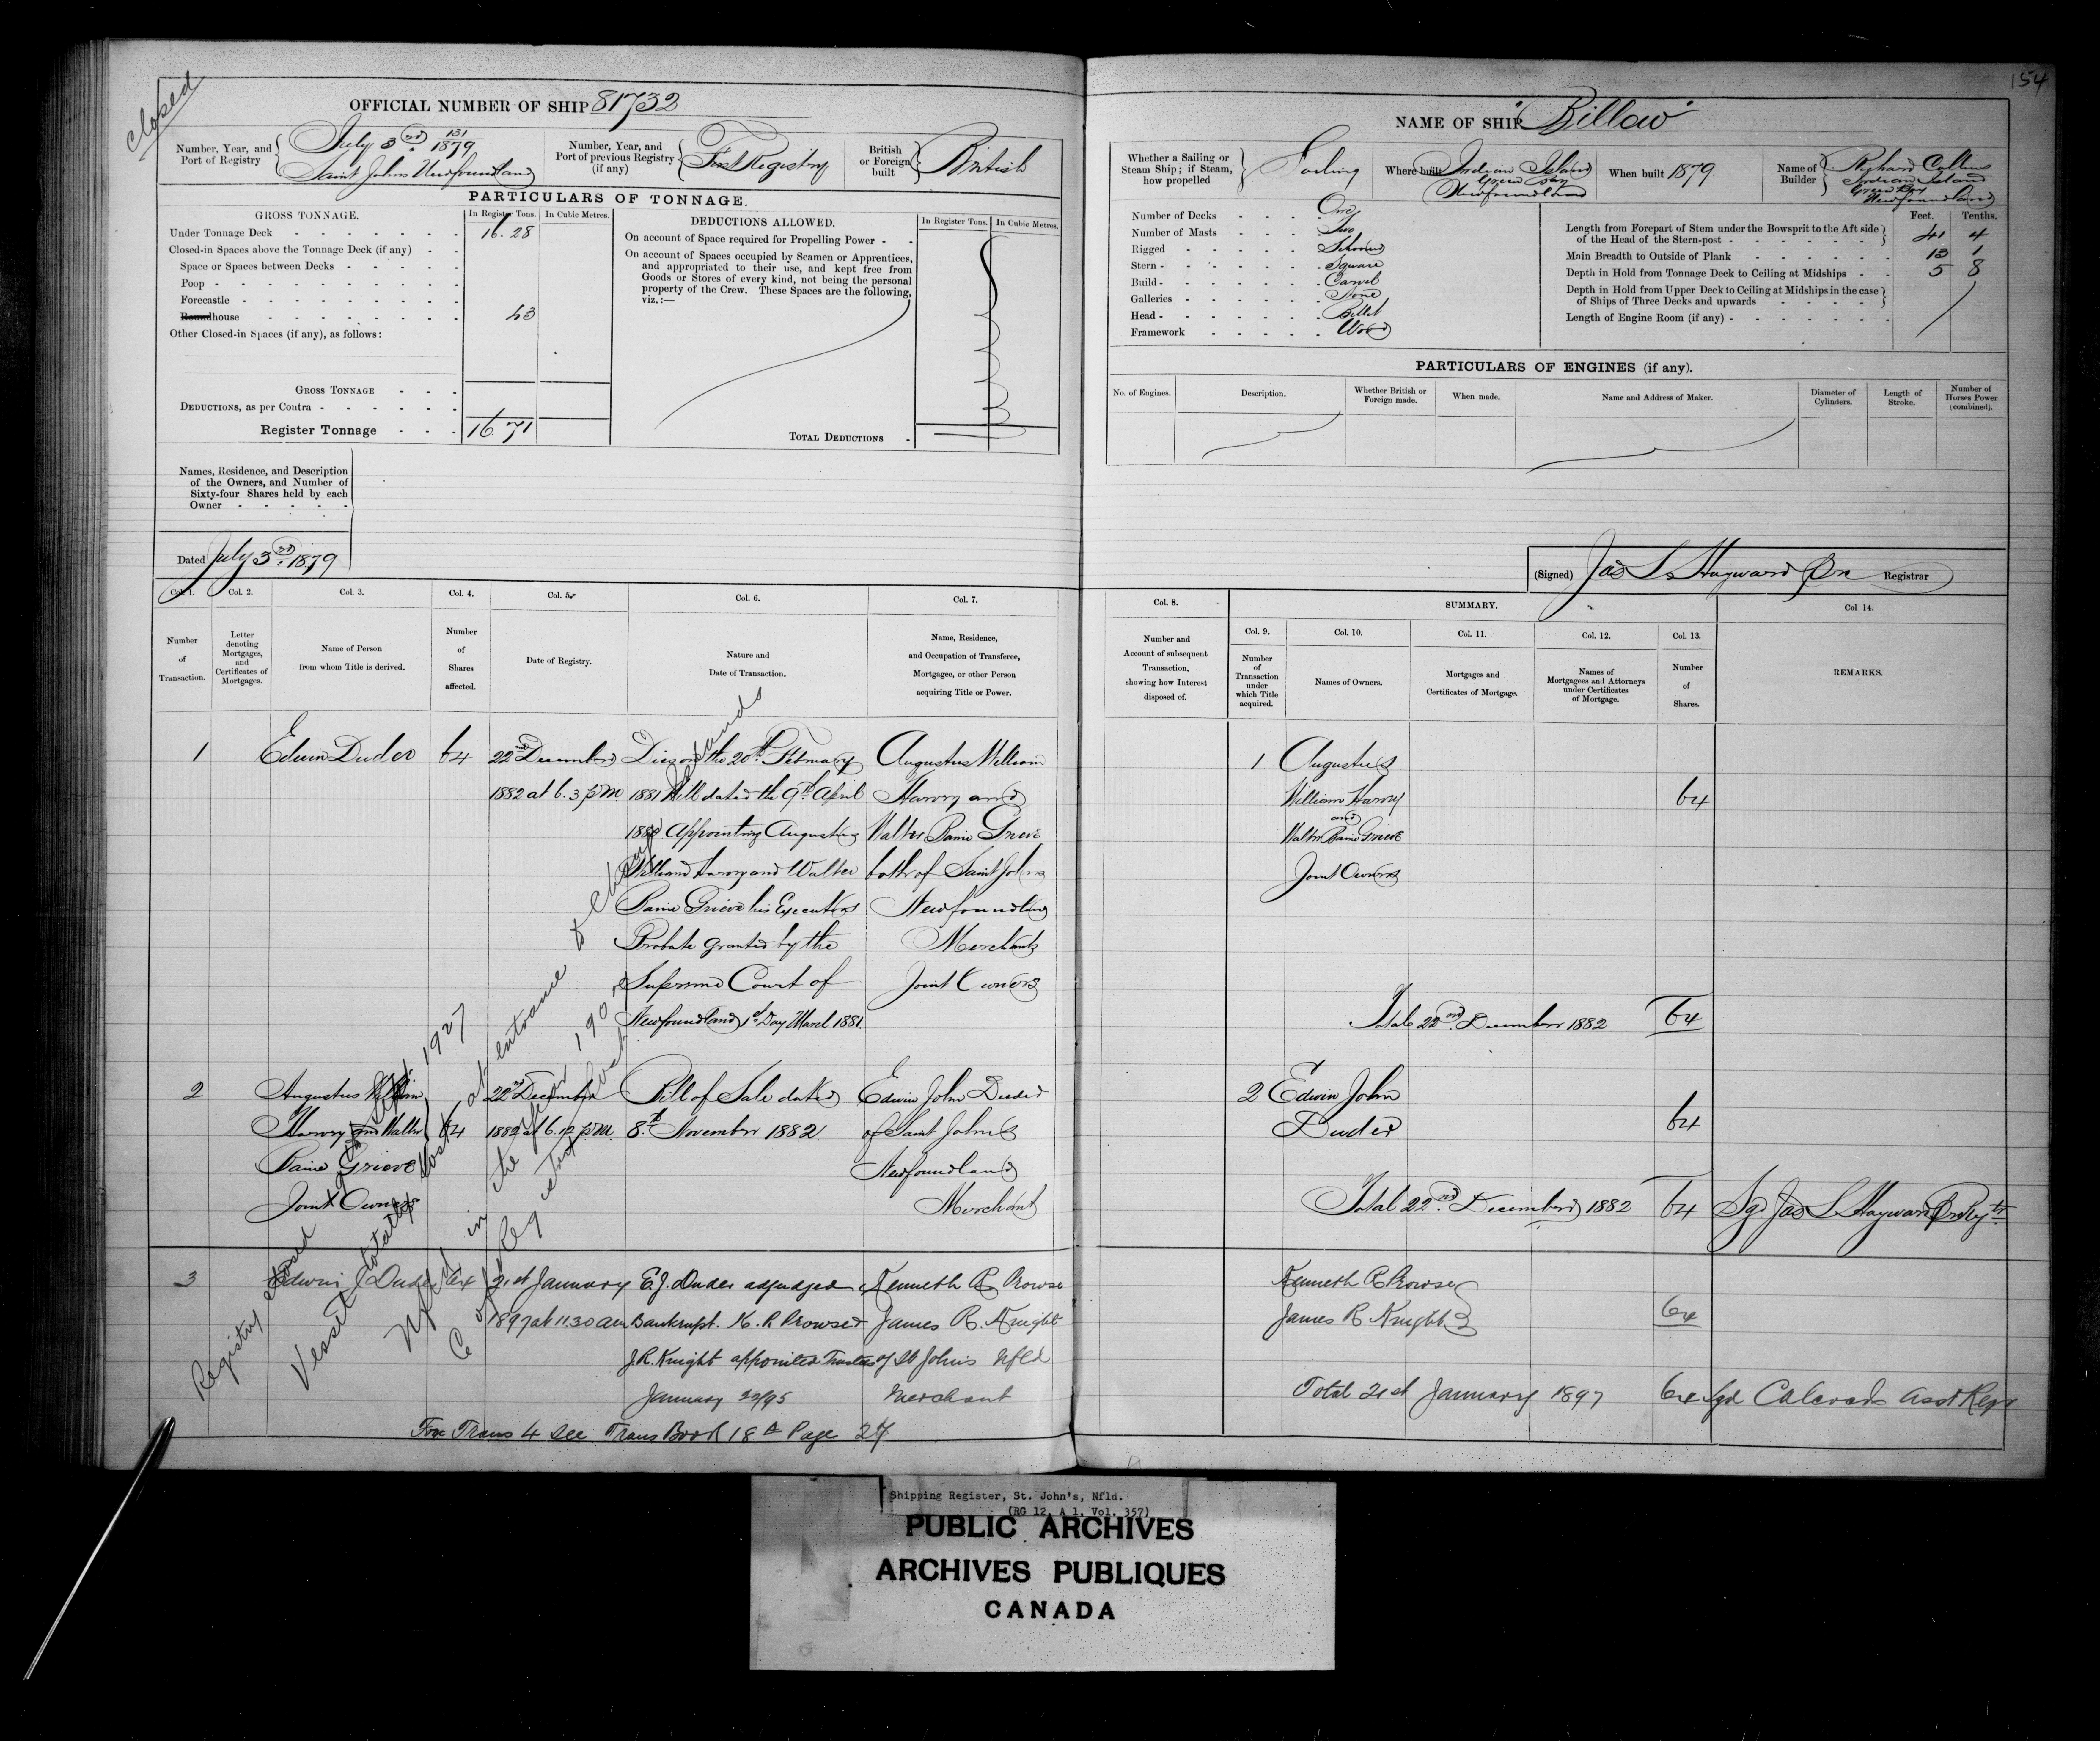 154
closed
OFFICIAL NUMBER OF SHIP 81732
Number, Year, and Port of Registry
July 3rd 131/1879
Saint Johns Newfoundland
Number, Year, and Port of previous Registry (if any)
First Registry
British or Foreign built
British
PARTICULARS OF TONNAGE.
GROSS TONNAGE.
In Register Tons.
In Cubic Metres.
Under Tonnage Deck 16.28
Closed-in Spaces above the Tonnage Deck (if any)
Space or Spaces between Decks
Poop
Forecastle
Roundhouse 43
Other Closed-in Spaces (if any), as follows:
GROSS TONNAGE
DEDUCTIONS, as per Contra
Register Tonnage 16 71
DEDUCTIONS ALLOWED.
In Register Tons.
In Cubic Metres.
On account of Space required for Propelling Power
On account of Spaces occupied by Seamen or Apprentices,
and appropriated to their use, and kept free from
Goods or Stores of every kind, not being the personal
property of the Crew. These Spaces are the following,
viz.:—
TOTAL DEDUCTIONS
Names, Residence, and Description
of the Owners, and Number of
Sixty-four Shares held by each
Owner
Dated July 3rd. 1879
NAME OF SHIP "Billow"
Whether a Sailing or Steam Ship; if Steam, how propelled
Sailing
Where built
Indian Island
Green Bay
Newfoundland
When built 1879.
Name of Builder
Collins
Indian Island
Green Bay
Newfoundland
Number of Decks One
Number of Masts Two
Rigged Schooner
Stern Square
Build Carvel
Galleries None
Head Billet
Framework Wood
Feet. Tenths.
Length from Forepart of Stem under the Bowsprit to the Aft side
of the Head of the Stern-post 41 4
Main Breadth to Outside of Plank 13 1
Depth in Hold from Tonnage Deck to Ceiling at Midships 5 8
Depth in Hold from Upper Deck to Ceiling at Midships in the case
of Ships of Three Decks and upwards
Length of Engine Room (if any)
PARTICULARS OF ENGINES (if any).
No. of Engines.
Description.
Whether British or Foreign made.
When made.
Name and Address of Maker.
Diameter of Cylinders.
Length of Stroke.
Number of Horses Power (combined).
(Signed) Jas L Hayward Registrar
Col. 1.
Col. 2.
Col. 3.
Col. 4.
Col. 5.
Col. 6.
Col. 7.
Number of Transaction.
Letter denoting Mortgages, and Certificates of Mortgages.
Name of Person from whom Title is derived.
Number of Shares affected.
Date of Registry.
Nature and Date of Transaction.
Name, Residence, and Occupation of Transferee, Mortgagee, or other Person acquiring Title or Power.
Col. 8.
Number and Account of subsequent Transaction, showing how Interest disposed of.
SUMMARY.
Col. 9.
Col. 10.
Col. 11.
Col. 12.
Col. 13.
Col 14.
Number of Transaction under which Title acquired.
Names of Owners.
Mortgages and Certificates of Mortgage.
Names of Mortgagees and Attorneys under Certificates of Mortgage.
Number of Shares.
REMARKS.
1 Edwin Duder 64
22nd December
1882 at 6.3 p.m.
Died on the 20th February
1881 Will dated the 9th April
1880 Appointing Augustus
William Harvey and Walter
Baine Grieve his Executors
Probate granted by the
Supreme Court of
Newfoundland 1st Day March 1881.
Augustus William
Harvey and
Walter Baine Grieve
both of Saint Johns
Newfoundland
Merchants
Joint Owners
1 Augustus
William Harvey
and
Walter Baine Grieve
Joint Owners
64
Total 22nd. December 1882 64
2 Augustus William
Harvey and Walter
Baine Grieve
Joint Owners
64
22nd December
1882 at 6.12 p.m.
Bill of Sale dated
8th November 1882.
Edwin John Duder
of Saint Johns
Newfoundland
Merchant
2 Edwin John
Duder
64
Total 22nd. December 1882 64
Sg. Jas L Hayward
3 Edwin J Duder 64
21st January
1897 at 11.30 am
E.J. Duder adjudged
Bankrupt. K. R Prowse
J.R. Knight appointed Trustees
January 22/95
Kenneth R Prowse
James R. Knight
of St Johns Nfld
Merchant
Kenneth R Prowse
James R Knight
64
Total 21st January 1897 64
For Trans 4 see Trans Book 18A Page 27
Registry closed
1927
Vessel totally lost at entrance
Nfld in the
C of Registry lost
Shipping Register, St. John's, Nfld.
(RG 12, A 1, Vol. 357)
PUBLIC ARCHIVES
ARCHIVES PUBLIQUES
CANADA